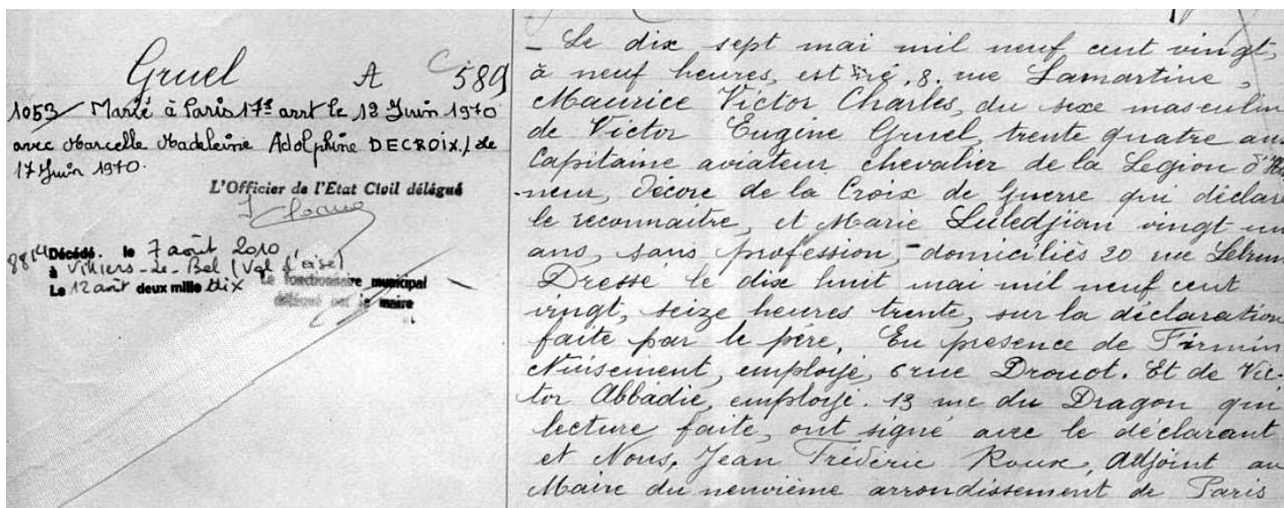 Gruel A 589
1053/ Marié à Paris 17e arrt le 12 Juin 1970
avec Marcelle Madeleine Adolphine DECROIX./Le
17 Juin 1970.
L'Officier de l'Etat Civil délégué
8814 Décédé. le 7 août 2010
à Villiers-le-Bel (Val d'oise)
Le 12 août deux mille dix Le fonctionnaire municipal
délégué par le maire
_ Le dix sept mai mil neuf cent vingt,
à neuf heures, est né. 8. rue Lamartine,
Maurice Victor Charles, du sexe masculin
de Victor Eugène Gruel, trente quatre ans
Capitaine aviateur chevalier de la Legion d'Hon
-neur, décoré de la Croix de Guerre qui déclare
le reconnaitre, et Marie Luledjian vingt un
ans, sans profession, - domiciliés 20 rue Lebrun
Dressé le dix huit mai mil neuf cent
vingt, seize heures trente, sur la déclaration
faite par le père. En présence de Firmin
Nuisement, employé, 6 rue Drouot. Et de Vic-
tor Abbadie, employé. 13 rue du Dragon qui
lecture faite, ont signé avec le déclarant
et Nous, Jean Frédéric Roux, Adjoint au
Maire du neuvième arrondissement de Paris